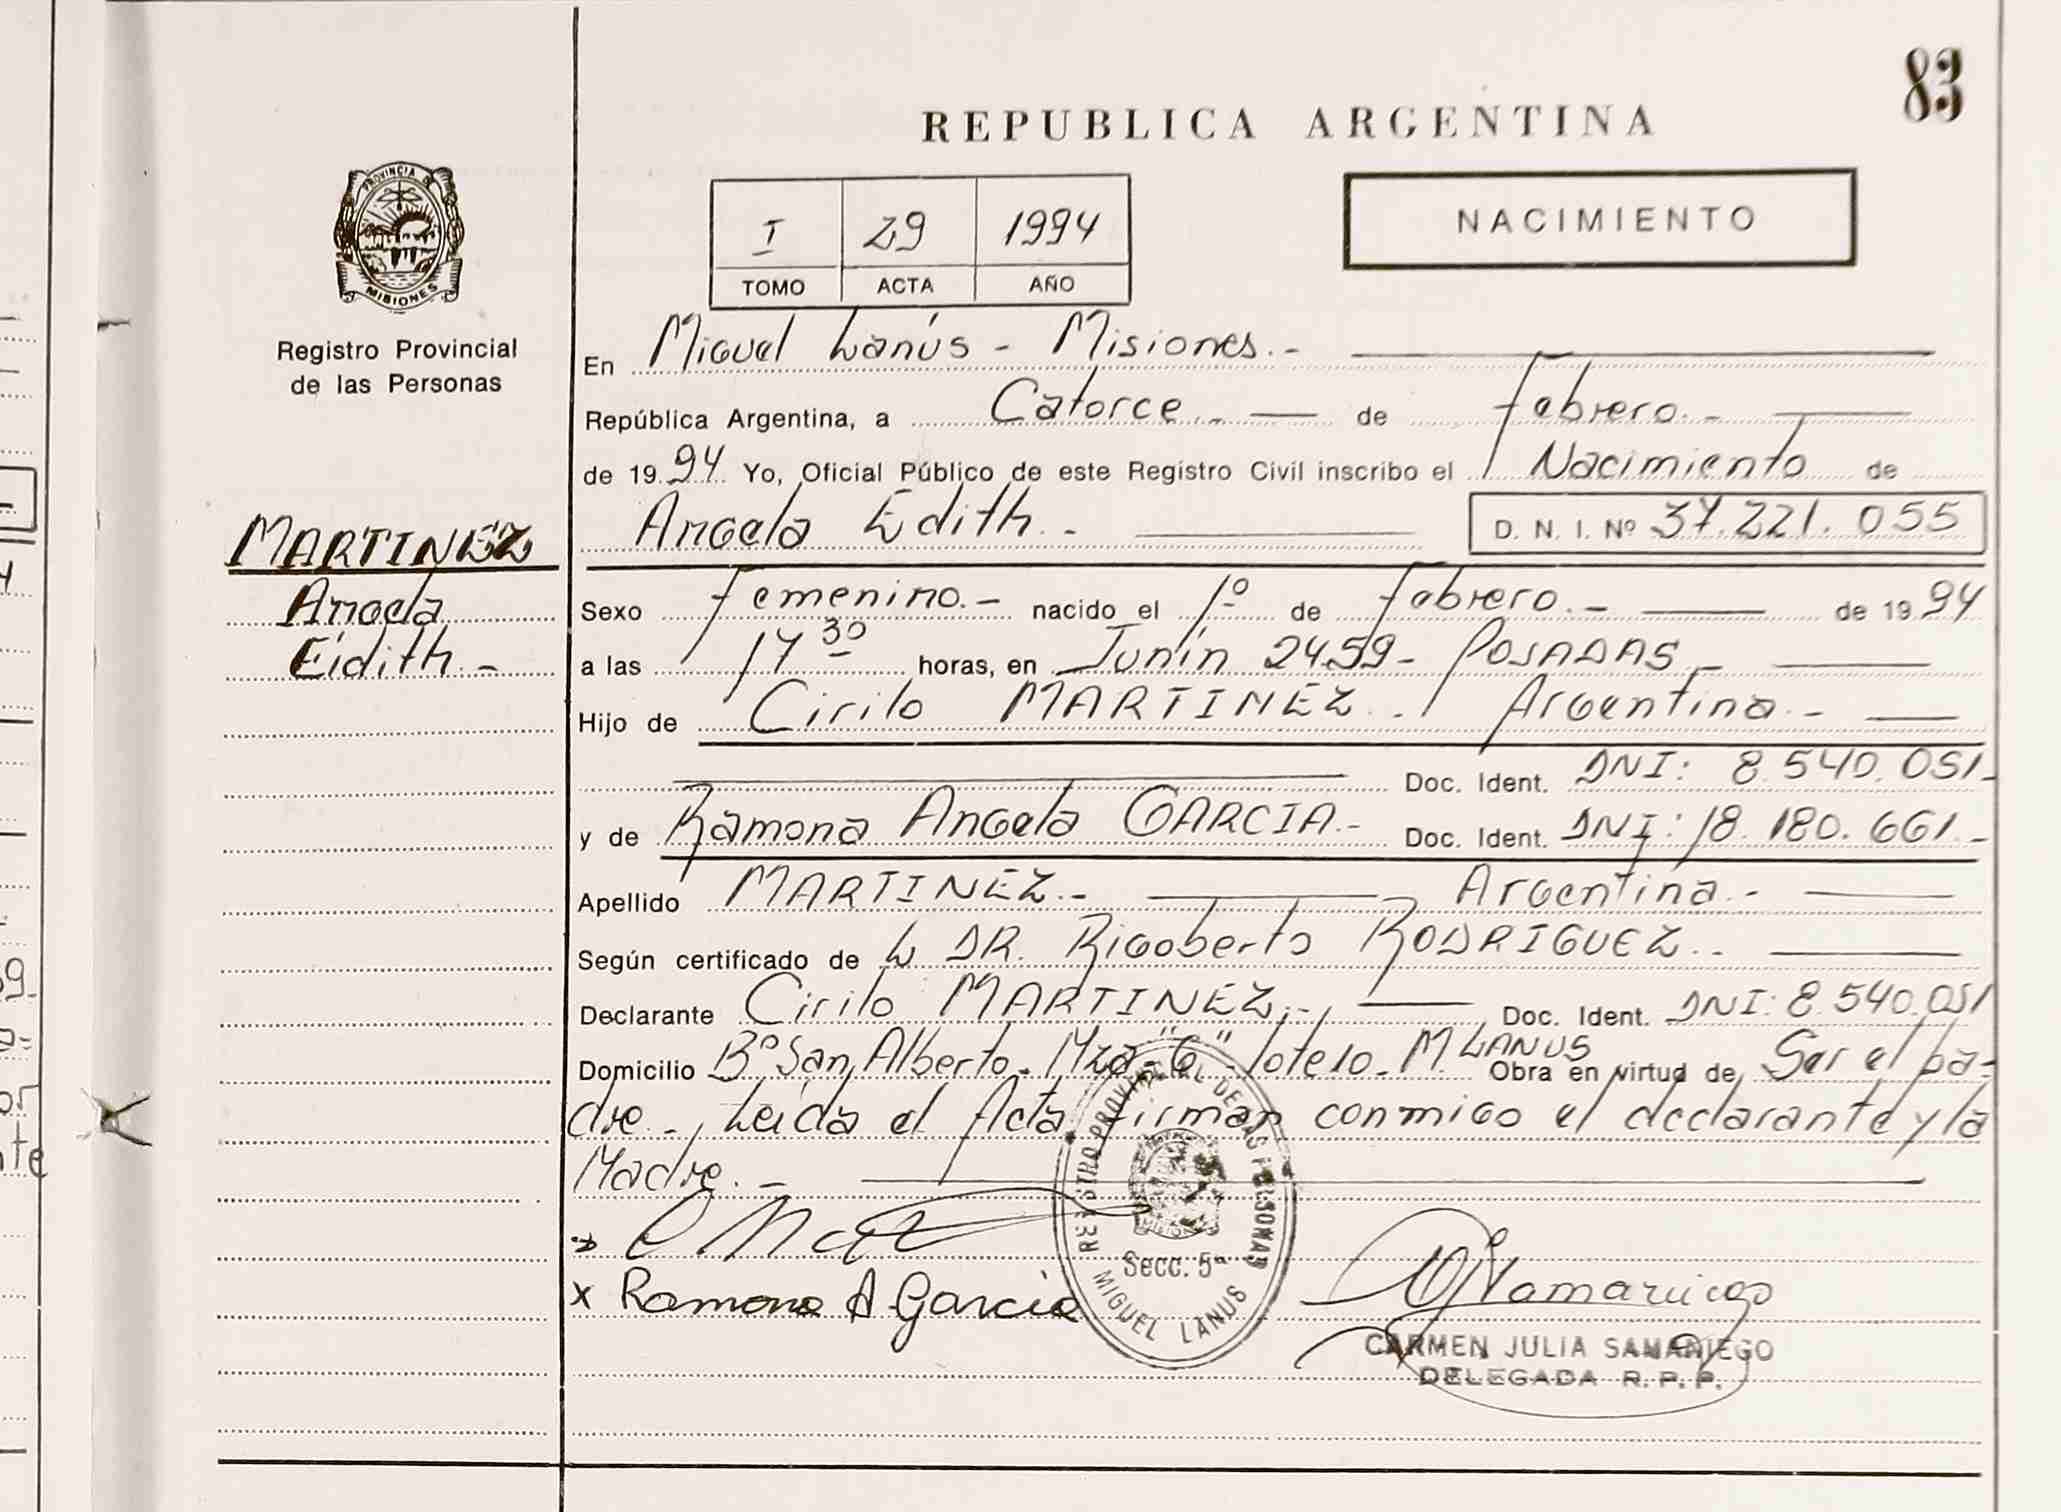 83
REPUBLICA ARGENTINA
PROVINCIA DE
MISIONES
I 29 1994
TOMO ACTA AÑO
NACIMIENTO
Registro Provincial
de las Personas
En Miguel Lanús - Misiones.-
República Argentina, a Catorce.- de febrero.-
de 1994 Yo, Oficial Público de este Registro Civil inscribo el Nacimiento de
Angela Edith.- D. N. I. Nº 37.221.055
MARTINEZ
Angela
Eidith.-
Sexo femenino.- nacido el 1º de febrero.- de 1994
a las 17 30 horas, en Junín 2459- POSADAS.-
Hijo de Cirilo MARTINEZ.- Argentina.-
Doc. Ident. DNI: 8.540.051-
y de Ramona Angela GARCIA.- Doc. Ident. DNI: 18.180.661.-
Apellido MARTINEZ.- Argentina.-
Según certificado de DR. Rigoberto RODRIGUEZ..
Declarante Cirilo MARTINEZ.- Doc. Ident. DNI: 8.540.051
Domicilio Bº San Alberto. Mza "G" lote 10. M. LANUS Obra en virtud de Ser el pa-
dre.- Leida el Acta firman conmigo el declarante y la
Madre.-
x Ramona A Garcia
REGISTRO PROVINCIAL DE LAS PERSONAS
Secc. 5ª
MIGUEL LANUS
CARMEN JULIA SAMANIEGO
DELEGADA R. P. P.